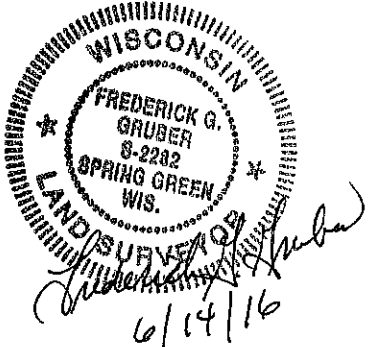 WISCONSIN
FREDERICK G.
GRUBER
S-2282
SPRING GREEN
WIS.
LAND SURVEYOR
Frederick G. Gruber
6/14/16